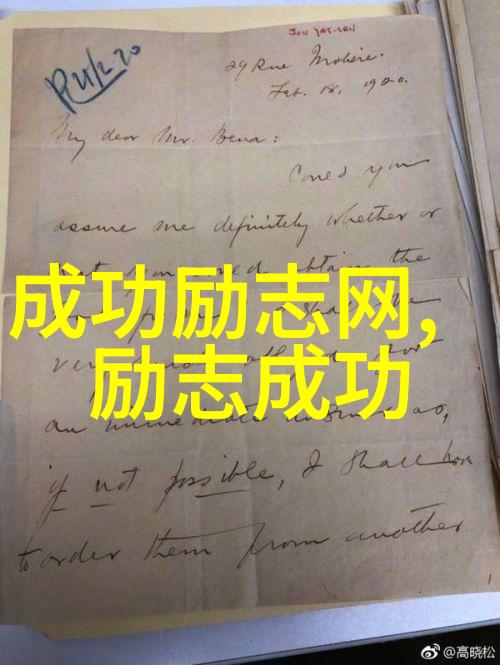 SUN YAT-SEN
R 21/2.20
29 Rue Molière.
Feb. 18, 1920.
My dear Mr. Bena:
Could you
assure me definitely whether or
not you could obtain the
very
成功励志网,
励志成功
an immediate answer as,
if not possible, I shall have
to order them from another
@高晓松